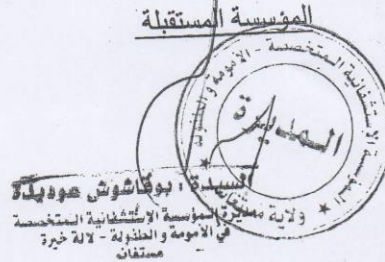 المؤسسة المستقبلة
المؤسسة الإستشفائية المتخصصة - الأمومة و الطفولة
ولاية مستغانم
المديرة
السيدة : بوقاشوش عويدة
مديرة المؤسسة الإستشفائية المتخصصة
في الأمومة و الطفولة - لالة خيرة
مستغانم